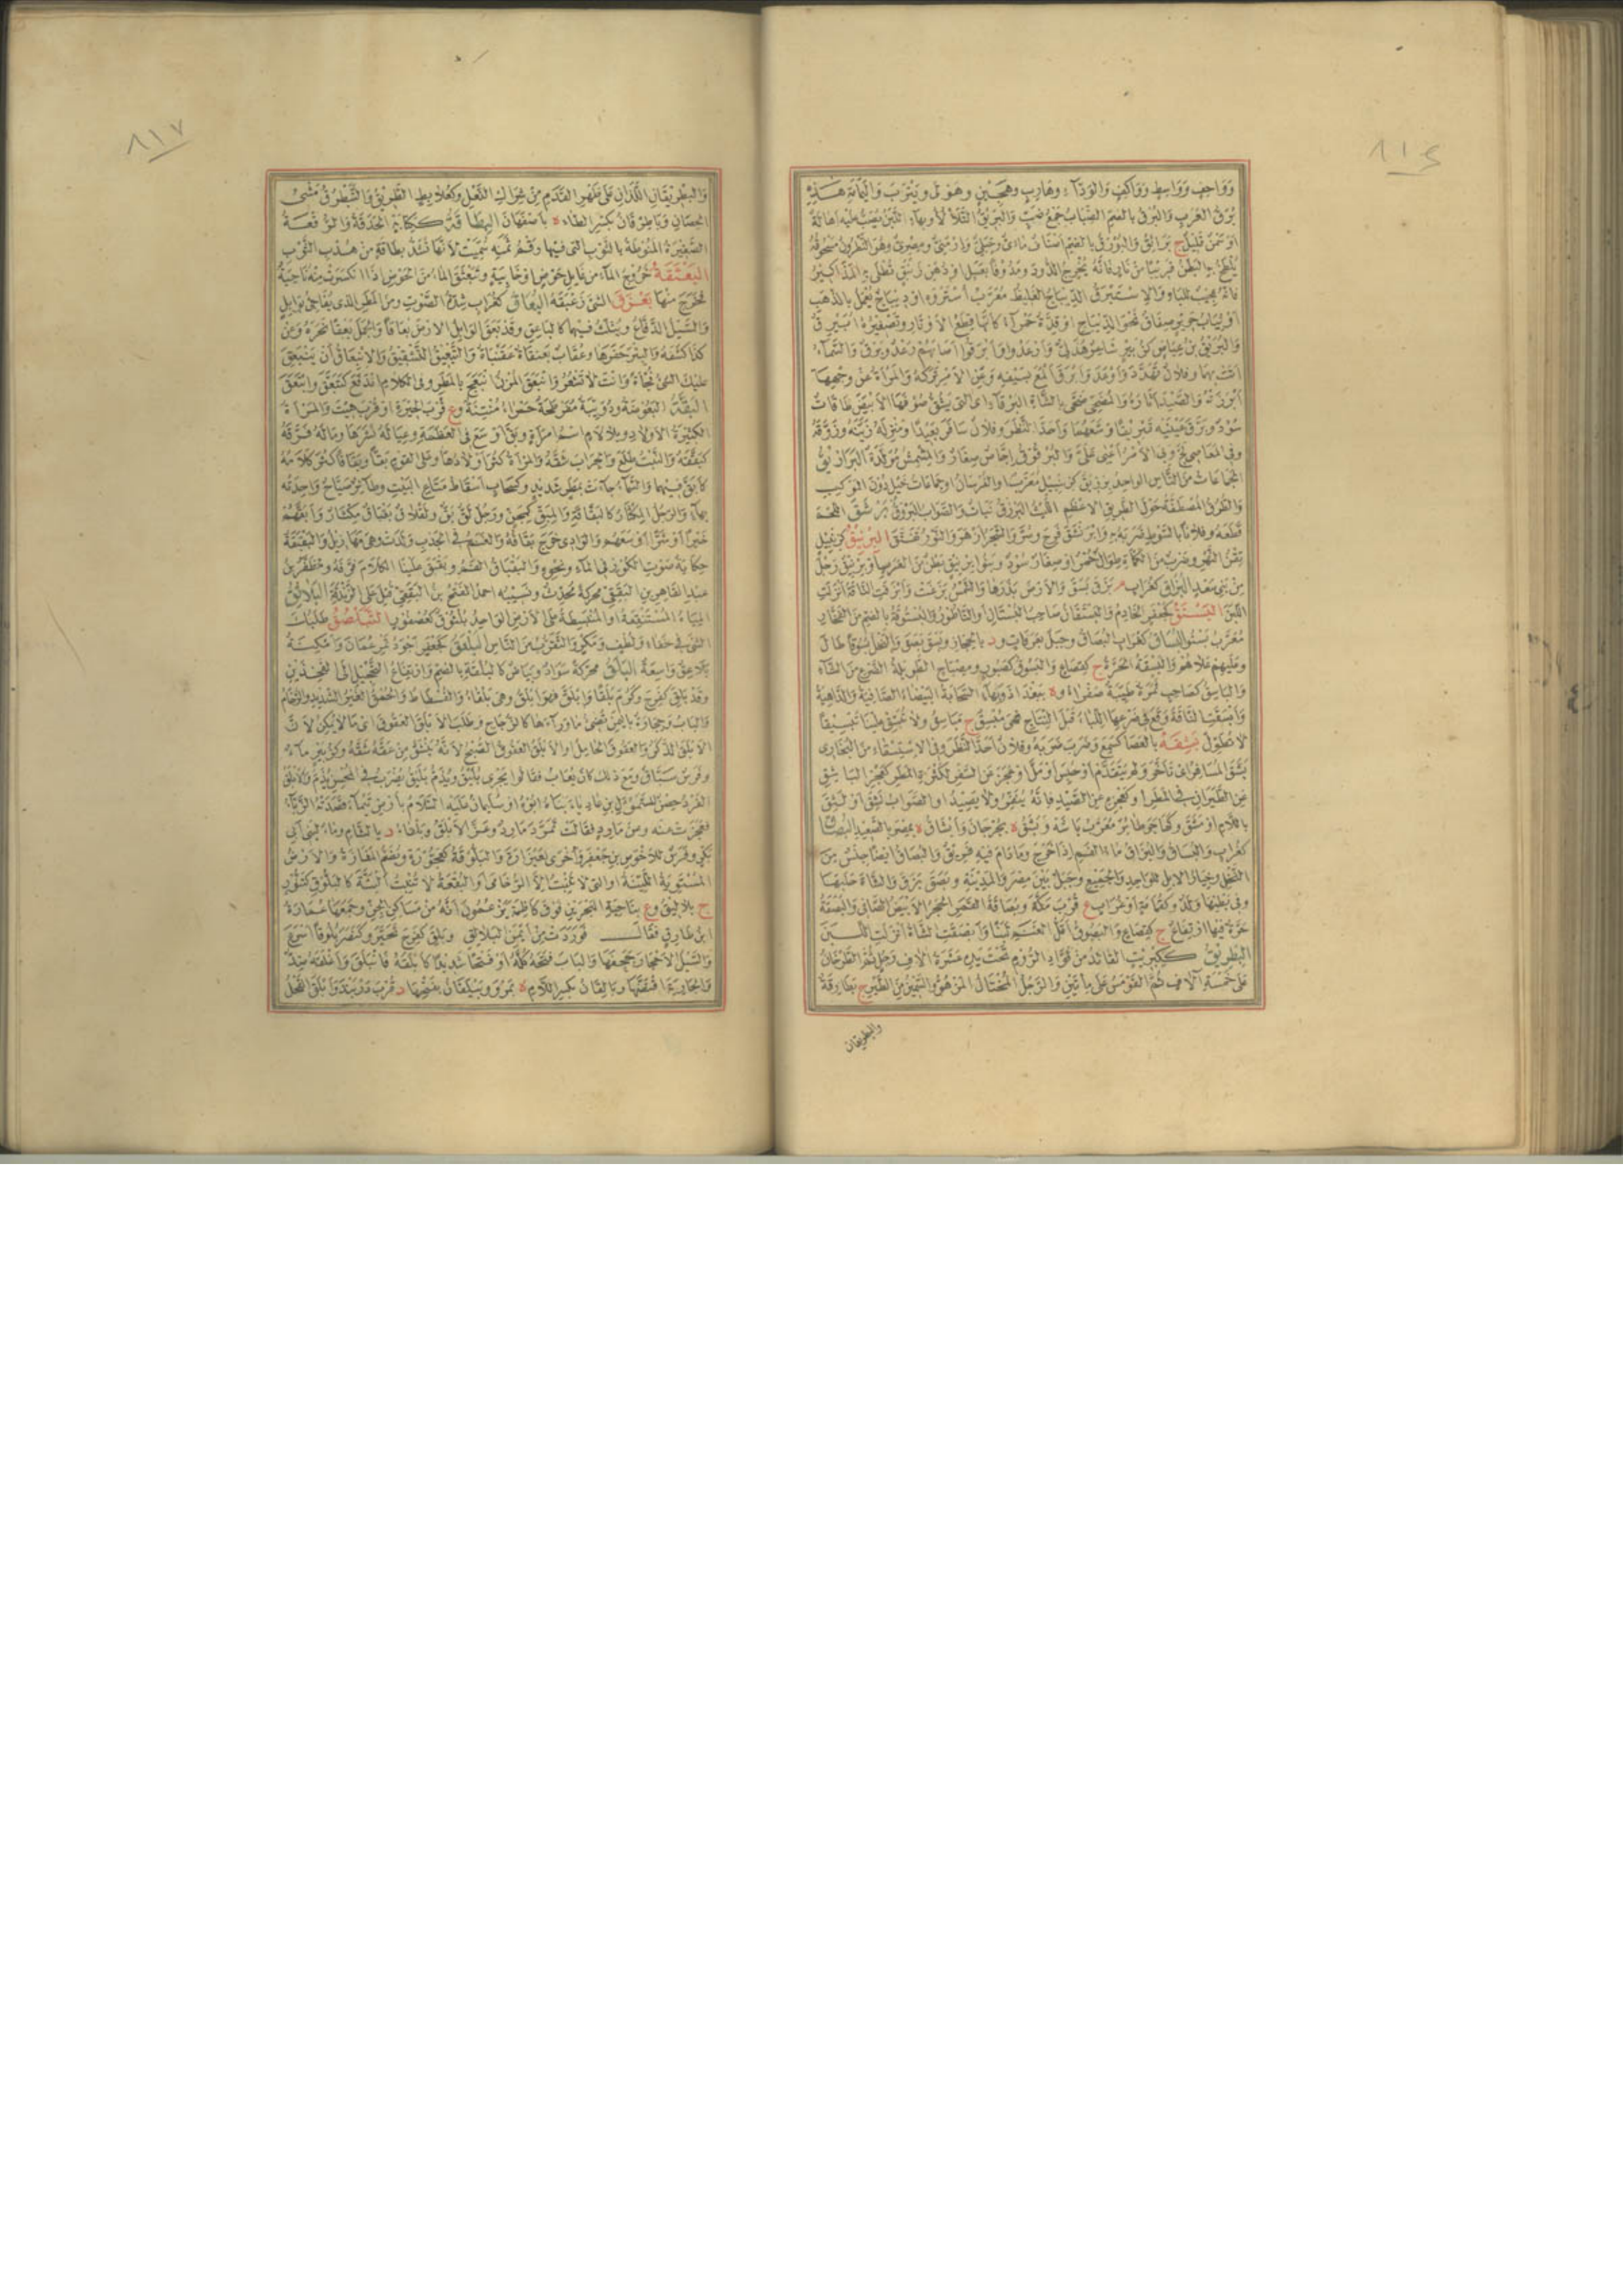 ٨١٤
وَوَاحِفٍ وَوَاسِطٍ وَوَاكِفٍ وَالوَدَّآءِ وهَارِبٍ وهَجِينٍ وهُوَلَى ويَثْرِبَ وَاليَمَامَةِ هٰذِهِ
بُرَقُ العَرَبِ وَالبُرَقُ بالضم الضِّبَابُ جَمْعُ ضَبٍّ وَالبَرِيقُ التَّلَأْلُأُ وبهاءٍ اللَّبَنُ يُصَبُّ عَلَيْهِ إِهَالَةٌ
اوْ سَمْنٌ قَلِيلٌ ج بَرَائِقُ وَالبُوْرَقُ بالضم أصْنَافٌ مَائِىٌّ وجَبَلِىٌّ وَأَرْمَنِىٌّ ومِصْرِىٌّ وهُوَ النَّطْرُونُ مَسْحُوقُهُ
يُلْطَخُ بِهِ البَطْنُ قَرِيبًا مِنْ نَارٍ فَانَّهُ يُخْرِجُ الدُّودَ ومَدُوفًا بعَسَلٍ اوْ دُهْنِ زَنْبَقٍ تُطْلَى بِهِ المَذَاكِيرُ
فانَّهُ عَجِيبٌ للبَاهِ وَالإِسْتَبْرَقُ الدِّيبَاجُ الغَلِيظُ مُعَرَّبُ أَسْتَرْوَه اوْ دِيبَاجٌ يُعْمَلُ بالذَّهَبِ
اوْ ثِيَابُ حَرِيرٍ صِفَاقٌ نَحْوُ الدِّيبَاجِ اوْ قِدَّةٌ حَمْرَآءُ كَأَنَّهَا قِطَعُ الأَوْتَارِ وتَصْغِيرُهُ أُبَيْرِقٌ
وَالبُرَيْقُ بْنُ عِيَاضٍ كزُبَيْرٍ شَاعِرٌ هُذَلِىٌّ وَأَرْعَدُوا وَأَبْرَقُوا أصَابَهُمْ رَعْدٌ وبَرْقٌ وَالسَّمَآءُ
أتَتْ بِهِمَا وفلانٌ تَهَدَّدَ وَأوْعَدَ وَأَبْرَقَ ألْمَعَ بسَيْفِهِ وعَنِ الأَمْرِ تَرَكَهُ وَالمَرْأَةُ عَنْ وَجْهِهَا
أبْرَزَتْهُ وَالصَّيْدَ أثَارَهُ وَالمُضَحِّى ضَحَّى بالشَّاةِ البَرْقَآءِ اى التى يَشُقُّ صُوْفَهَا الأَبْيَضَ طَاقَاتٌ
سُوْدٌ وبَرَّقَ عَيْنَيْهِ تَبْرِيقًا وَسَّعَهُمَا وَأحَدَّ النَّظَرَ وفلانٌ سَافَرَ بَعِيدًا ومَنْزِلَهُ زَيَّنَهُ وزَوَّقَهُ
وفى المَعَاصِى لَجَّ وبِى الأَمْرُ أعْيَى عَلَىَّ وَالبُرْقُوقُ إِجَّاصٌ صِغَارٌ وَالمِشْمِشُ مُوَلَّدَةٌ البَرَازِيقُ
الجَمَاعَاتُ مِنَ النَّاسِ الواحِدُ بِرْزِيقٌ كزِنْبِيلٍ مُعَرَّبٌ او الفُرْسَانُ اوْ جَمَاعَاتُ خَيْلٍ دُوْنَ المَوْكِبِ
وَالطُّرُقُ المُصْطَفَّةُ حَوْلَ الطَّرِيقِ الأَعْظَمِ اللَّيْثُ البَرْزَقُ نَبَاتٌ وَالصَّوَابُ البَرْوَقُ بَرْشَقَ اللَّحْمَ
قَطَعَهُ وفلانًا بالسَّوْطِ ضَرَبَهُ بِهِ وَابْرَنْشَقَ فَرِحَ وسُرَّ وَالشَّجَرُ أزْهَرَ وَالنَّوْرُ تَفَتَّقَ البِرْنِيقُ كزِنْبِيلٍ
تِقْنُ النَّهْرِ وضَرْبٌ مِنَ الكَمْأَةِ طِوَالٌ حُمْرٌ اوْ صِغَارٌ سُوْدٌ وبَنُو بِرْنِيقٍ بَطْنٌ مِنَ العَرَبِ اوْ بِرْنِيقٌ رَجُلٌ
مِنْ بَنِى سَعْدٍ البُزَاقُ كغُرَابٍ م بَزَقَ بَسَقَ وَالأَرْضَ بَذَرَهَا وَالشَّمْسُ بَزَغَتْ وَأَبْزَقَتِ النَّاقَةُ أنْزَلَتِ
اللَّبَنَ البَسْتَقُ كجَعْفَرٍ الخَادِمُ وَالبُسْتَقَانُ صَاحِبُ البُسْتَانِ او النَّاطُوْرُ وَالبُسْتُوقَةُ بالضم مِنَ الفَخَّارِ
مُعَرَّبُ بَسْتُو البُسَاقُ كغُرَابٍ البُصَاقُ وجَبَلٌ بعَرَفَاتٍ و د بالحِجَازِ وبَسَقَ بَصَقَ وَالنَّخْلُ بُسُوقًا طَالَ
وعَلَيْهِمْ عَلَاهُمْ وَالبَسْقَةُ الحَرَّةُ ج كقِصَاعٍ وَالبَسُوقُ كصَبُورٍ ومِصْبَاحٍ الطَّوِيلَةُ الضَّرْعِ مِنَ الشَّاءِ
وَالبَاسِقُ كصَاحِبٍ ثَمَرَةٌ طَيِّبَةٌ صَفْرَاءُ و ة ببَغْدَادَ وبهاءٍ السَّحَابَةُ البَيْضَاءُ الصَّافِيَةُ وَالدَّاهِيَةُ
وَأَبْسَقَتِ النَّاقَةُ وَقَعَ فى ضَرْعِهَا اللِّبَأُ قَبْلَ النِّتَاجِ فهى مُبْسِقٌ ج مَبَاسِقُ ولا تُبَسِّقْ عَلَيْنَا تَبْسِيقًا
لا تُطَوِّلْ بَشِقَهُ بالعَصَا كسَمِعَ وَضَرَبَ ضَرَبَهُ وفلانٌ أحَدَّ النَّظَرَ وفى الاسْتِسْقَاءِ مِنَ البُخَارِى
بَشِقَ المُسَافِرُ اى تَأَخَّرَ ولَمْ يَتَقَدَّمْ اوْ حُبِسَ اوْ مَلَّ اوْ عَجَزَ عَنِ السَّفَرِ لكَثْرَةِ المَطَرِ كعَجْزِ البَاشَقِ
عَنِ الطَّيَرَانِ فى المَطَرِ اوْ كعَجْزِهِ عَنِ الصَّيْدِ فانَّهُ يُنَفِّرُ ولا يَصِيدُ او الصَّوَابُ لَشِقَ اوْ لَثِقَ
باللَّامِ اوْ مَشَقَ وكهَاجَرَ طَائِرٌ مُعَرَّبُ بَاشَه وبَشَقُ ة بجُرْجَانَ وَأَبْشَاقُ ة بمِصْرَ بالصَّعِيدِ البُصَاقُ
كغُرَابٍ وَالبُسَاقُ وَالبُزَاقُ مَآءُ الفَمِ إِذَا خَرَجَ ومَا دَامَ فِيهِ فرِيقٌ وَالبُصَاقُ ايضًا جِنْسٌ مِنَ
النَّخْلِ وخِيَارُ الإِبِلِ للوَاحِدِ وَالجَمِيعِ وجَبَلٌ بَيْنَ مِصْرَ وَالمَدِينَةِ وبَصَقَ بَزَقَ وَالشَّاةَ حَلَبَهَا
وفى بَطْنِهَا وَلَدٌ وكغُمَامَةٍ اوْ غُرَابٍ ع قُرْبَ مَكَّةَ وبُصَاقَةُ القَمَرِ الحَجَرُ الأَبْيَضُ الصَّافِى وَالبَصْقَةُ
حَرَّةٌ فِيهَا ارْتِفَاعٌ ج كقِصَاعٍ وَالبَصُوقُ أقَلُّ الغَنَمِ لَبَنًا وَأَبْصَقَتِ الشَّاةُ أنْزَلَتِ اللَّبَنَ
البِطْرِيقُ ككِبْرِيتٍ القَائِدُ مِنْ قُوَّادِ الرُّوْمِ تَحْتَ يَدِهِ عَشَرَةُ آلافِ رَجُلٍ ثُمَّ الطَّرْخَانُ
عَلَى خَمْسَةِ آلافٍ ثُمَّ القَوْمَسُ عَلَى مِائَتَيْنِ وَالرَّجُلُ المُخْتَالُ المَزْهُوُّ وَالسَّمِينُ مِنَ الطَّيْرِ ج بَطَارِقَةٌ
والبطريقان
٨١٧
وَالبِطْرِيقَانِ اللَّذَانِ عَلَى ظَهْرِ القَدَمِ مِنْ شِرَاكِ النَّعْلِ وكعُلَابِطٍ الطَّوِيلُ وَالتَّبَطْرُقُ مَشْىُ
الحِصَانِ وبَاطِرْقَانُ بكَسْرِ الطَّاءِ ة بأَصْفَهَانَ البِطَاقَةُ ككِتَابَةٍ الحَدَقَةُ وَالرُّقْعَةُ
الصَّغِيرَةُ المَنُوطَةُ بالثَّوْبِ التى فِيهَا رَقْمُ ثَمَنِهِ سُمِّيَتْ لأَنَّهَا تُشَدُّ بطَاقَةٍ مِنْ هُدْبِ الثَّوْبِ
البَعْثَقَةُ خُرُوْجُ المَآءِ مِنْ غَائِلِ حَوْضٍ اوْ خَابِيَةٍ وتَبَعْثَقَ المَآءُ مِنَ الحَوْضِ إِذَا انْكَسَرَتْ مِنْهُ نَاحِيَةٌ
فَخَرَجَ مِنْهَا بَعْزَقَ الشَّئَ زَعْبَقَهُ البُعَاقُ كغُرَابٍ شِدَّةُ الصَّوْتِ ومِنَ المَطَرِ الذى يُفَاجِئُ بوَابِلٍ
وَالسَّيْلُ الدُّفَّاعُ ويُثَلَّثُ فِيهِمَا كالبَاعِقِ وقَدْ بَعَقَ الوَابِلُ الأَرْضَ بُعَاقًا وَالجَمَلَ بَعْقًا نَحَرَهُ وعَنْ
كَذَا كَشَفَهُ وَالبِئْرَ حَفَرَهَا وعُقَابٌ بَعَنْقَاةٌ عَقَنْبَاةٌ وَالتَّبْعِيقُ التَّشْقِيقُ وَالانْبِعَاقُ أنْ يَنْبَعِقَ
عَلَيْكَ الشَّئُ فُجَآءَةً وَأَنْتَ لا تَشْعُرُ وَانْبَعَقَ المُزْنُ انْبَعَجَ بالمَطَرِ وفى الكَلَامِ انْدَفَعَ كتَبَعَّقَ وَابْتَعَقَ
البَقَّةُ البَعُوضَةُ ودُوَيْبَّةٌ مُفَرْطَحَةٌ حَمْرَاءُ مُنْتِنَةٌ و ع قُرْبَ الحِيرَةِ اوْ قُرْبَ هِيتَ وَالمَرْأَةُ
الكَثِيرَةُ الأَوْلَادِ وبلَا لَامٍ اسْمُ امْرَأَةٍ وبَقَّ أوْسَعَ فى العَطِيَّةِ وعِيَالَهُ نَشَرَهَا ومَالَهُ فَرَّقَهُ
كبَقَّقَهُ وَالنَّبْتُ طَلَعَ وَالجِرَابَ شَقَّهُ وَالمَرْأَةُ كَثُرَ أوْلادُهَا وعَلَى القَوْمِ بَقًّا وبَقَاقًا كَثُرَ كَلَامُهُ
كأَبَقَّ فِيهِمَا وَالسَّمَآءُ جَآءَتْ بمَطَرٍ شَدِيدٍ وكسَحَابٍ أسْقَاطُ مَتَاعِ البَيْتِ وطَآئِرٌ صَيَّاحٌ وَاحِدَتُهُ
بهاءٍ وَالرَّجُلُ المِكْثَارُ كالبَقَاقَةِ وَالمِبَقِّ كمِجَنٍّ ورَجُلٌ لَقٌّ بَقٌّ ولَقْلَاقٌ بَقْبَاقٌ مِكْثَارٌ وَأَبَقَّهُمْ
خَيْرًا اوْ شَرًّا أوْسَعَهُمْ وَالوَادِى خَرَجَ بَقَاقُهُ وَالغَنَمُ فى الجَدْبِ وَلَدَتْ وهى مَهَازِيلُ وَالبَقْبَقَةُ
حِكَايَةُ صَوْتِ الكُوْزِ فى المَآءِ ونَحْوِهِ وَالبَقْبَاقُ الفَمُ وبَقْبَقَ عَلَيْنَا الكَلَامَ فَرَّقَهُ ومُظَفَّرُ بْنُ
عَبْدِ القَاهِرِ بْنِ البَقَقِىِّ مُحَرَّكَةً مُحَدِّثٌ ونَسِيبُهُ أحْمَدُ الفَتْحُ بْنُ البَقَقِىِّ قُتِلَ عَلَى الزَّنْدَقَةِ البَلَاثِقُ
المِيَاهُ المُسْتَنْقِعَةُ او المُنْبَسِطَةُ عَلَى الأَرْضِ الواحِدُ بُلْثُوقٌ كعُصْفُورٍ التَّبَلْصُقُ طَلَبُكَ
الشَّئَ فى خَفَاءٍ ولُطْفٍ ومَكْرٍ وَالتَّقَرُّبُ مِنَ النَّاسِ البَلْعَقُ كجَعْفَرٍ أجْوَدُ تَمْرِ عُمَانَ وَأمْكِنَةٌ
بَلَاعِقُ وَاسِعَةٌ البَلَقُ محركةً سَوَادٌ وبَيَاضٌ كالبُلْقَةِ بالضم وَارْتِفَاعُ التَّحْجِيلِ إِلَى الفَخِذَيْنِ
وقَدْ بَلِقَ كفَرِحَ وكَرُمَ بَلَقًا وَابْلَقَّ فهو أَبْلَقُ وهى بَلْقَاءُ وَالفُسْطَاطُ وَالحُمْقُ الغَيْرُ الشَّدِيدِ وَالرُّخَامُ
وَالبَابُ وحِجَارَةٌ باليَمَنِ تُضِئُ مَا وَرَآءَهَا كالزُّجَاجِ وطَلَبَ الأَبْلَقَ العَقُوقَ اى مَا لا يُمْكِنُ لأَنَّ
الأَبْلَقَ الذَّكَرُ وَالعَقُوقُ الحَامِلُ او الأَبْلَقُ العَقُوقُ الصُّبْحُ لأَنَّهُ يَنْشَقُّ مِنْ عَقَّهُ شَقَّهُ وكزُبَيْرٍ مآءٌ
وفَرَسٌ سَبَّاقٌ ومَعَ ذٰلِكَ كَانَ يُعَابُ فقَالُوا يَجْرِى بُلَيْقٌ ويُذَمُّ بُلَيْقٌ يُضْرَبُ فى المُحْسِنِ يُذَمُّ وَالأَبْلَقُ
الفَرْدُ حِصْنٌ للسَّمَوْأَلِ بْنِ عَادِيَاءَ بَنَاهُ أبُوهُ اوْ سُلَيْمَانُ عَلَيْهِ السَّلَامُ بأَرْضِ تَيْمَآءَ قَصَدَتْهُ الزَّبَّآءُ
فعَجَزَتْ عَنْهُ وعَنْ مَارِدٍ فقَالَتْ تَمَرَّدَ مَارِدٌ وعَزَّ الأَبْلَقُ وبَلْقَاءُ د بالشَّامِ ومَاءٌ لبَنِى أبِى
بَكْرٍ وفَرَسٌ للأَحْوَصِ بْنِ جَعْفَرٍ وأُخْرَى لعَيْزَارَةَ وَالبَلُّوقَةُ كعَجُّوْرَةٍ ويُضَمُّ المَفَازَةُ وَالأَرْضُ
المُسْتَوِيَةُ اللَّيِّنَةُ او التى لا تُنْبِتُ إِلَّا الرُّخَامَى او البُقْعَةُ لا تُنْبِتُ البَتَّةَ كالبَلُّوقِ كتَنُّوْرٍ
ج بَلَالِيقُ و ع بنَاحِيَةِ البَحْرَيْنِ فَوْقَ كَاظِمَةَ يَزْعُمُونَ أنَّهُ مِنْ مَسَاكِنِ الجِنِّ وجَمَعَهَا عُمَارَةُ
ابْنُ طَارِقٍ فقَالَ فوَرَدَتْ مِنْ أيْمَنِ البَلَالِقِ وبَلِقَ كفَرِحَ تَحَيَّرَ وكنَصَرَ بُلُوقًا أسْرَعَ
وَالسَّيْلُ الأَحْجَارَ جَحَفَهَا وَالبَابَ فَتَحَهُ كُلَّهُ اوْ فَتْحًا شَدِيدًا كأَبْلَقَهُ فانْبَلَقَ وَأَغْلَقَهُ ضِدٌّ
وَالجَارِيَةَ افْتَضَّهَا وبَالِقَانُ بكَسْرِ اللَّامِ ة بمَرْوَ وبَيْلَقَانُ بفَتْحِهَا د قُرْبَ دَرْبَنْدَ وَأَبْلَقَ الفَحْلُ